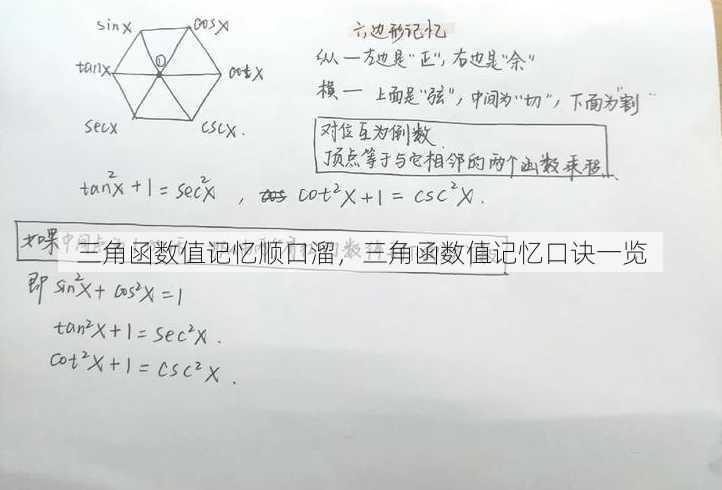 sinx cosx
六边形记忆
纵一左边是"正", 右边是"余"
tanx 1 cotx
横一 上面是"弦", 中间为"切", 下面为"割"
secx cscx.
对位互为倒数.
顶点等于与它相邻的两个函数乘积.
tan²x+1=sec²x , cot²x+1=csc²x.
如果中间
三角函数值记忆顺口溜，三角函数值记忆口诀一览
即 sin²x+cos²x=1
tan²x+1=sec²x.
cot²x+1=csc²x.